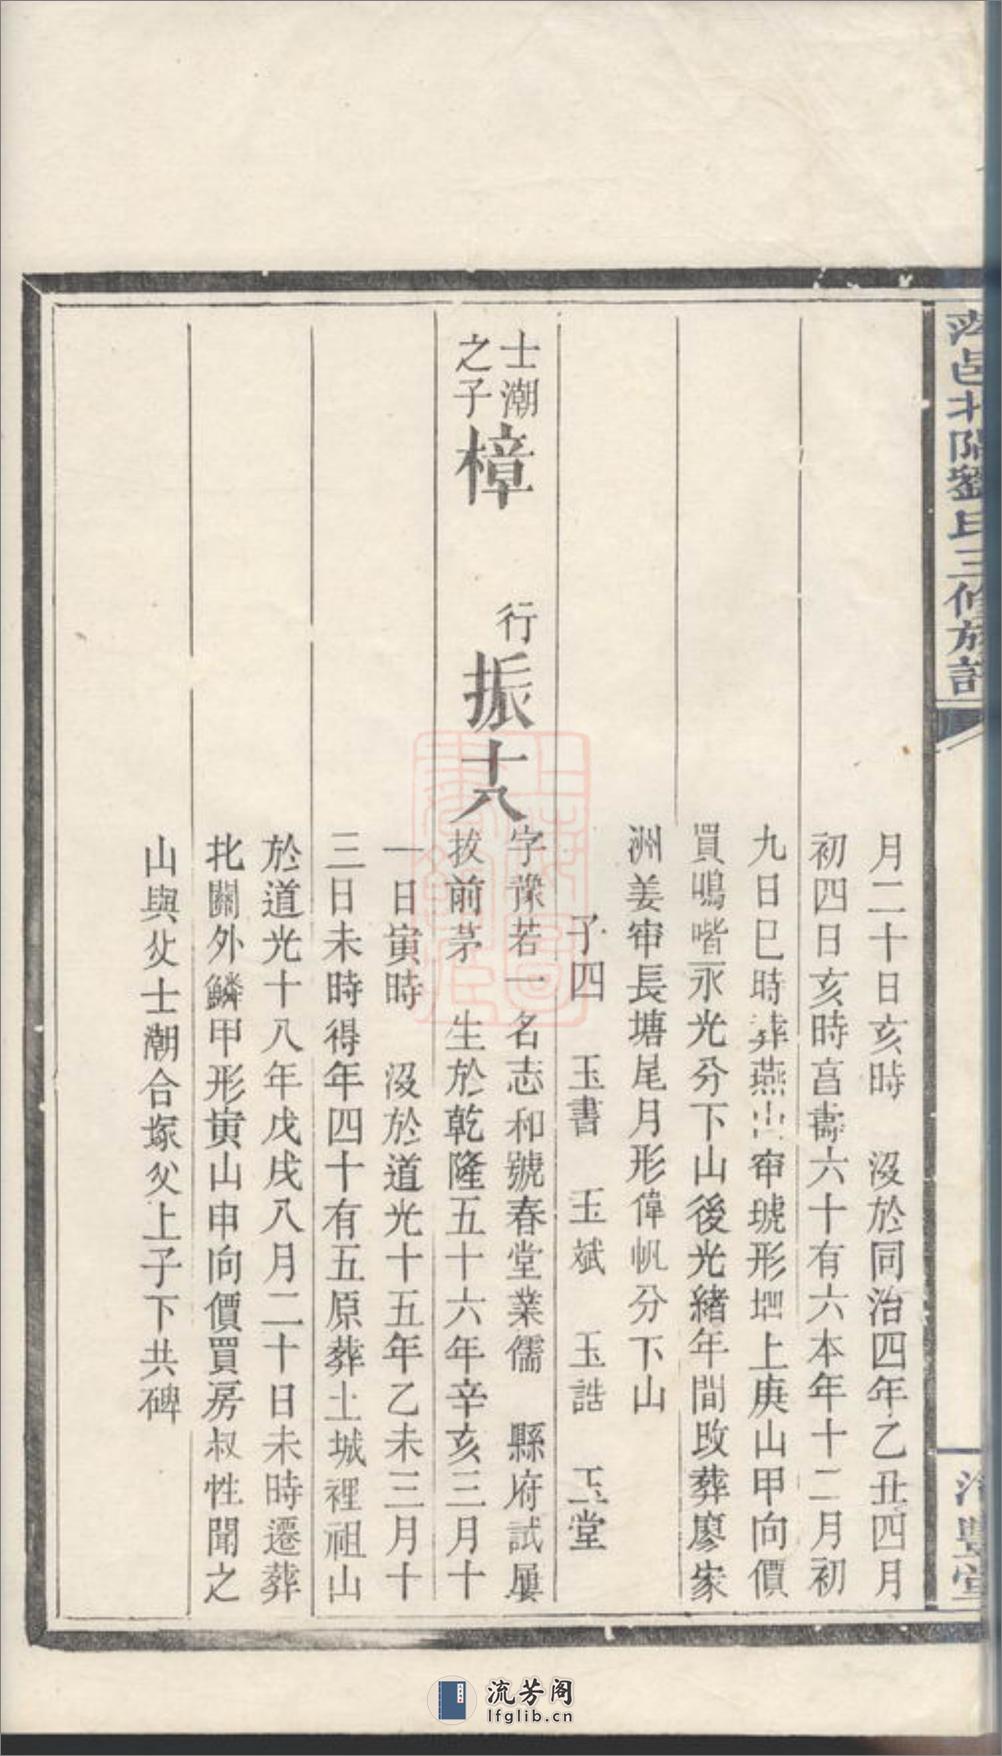 萍邑北隅劉氏三修族譜
月二十日亥時　沒於同治四年乙丑四月
初四日亥時亯壽六十有六本年十二月初
九日巳時葬燕出窂琥形壋上庚山甲向價
買鳴喈永光分下山後光緒年間改葬廖家
洲姜窂長塘尾月形偉帆分下山
子四　玉書　玉斌　玉誥　玉堂
士潮之子樟　行振十八
字豫若一名志和號春堂業儒　縣府試屢
拔前茅　生於乾隆五十六年辛亥三月十
一日寅時　沒於道光十五年乙未三月十
三日未時得年四十有五原葬土城裡祖山
於道光十八年戊戌八月二十日未時遷葬
北關外鱗甲形寅山申向價買房叔性聞之
山與父士潮合塚父上子下共碑
流芳阁
lfglib.cn